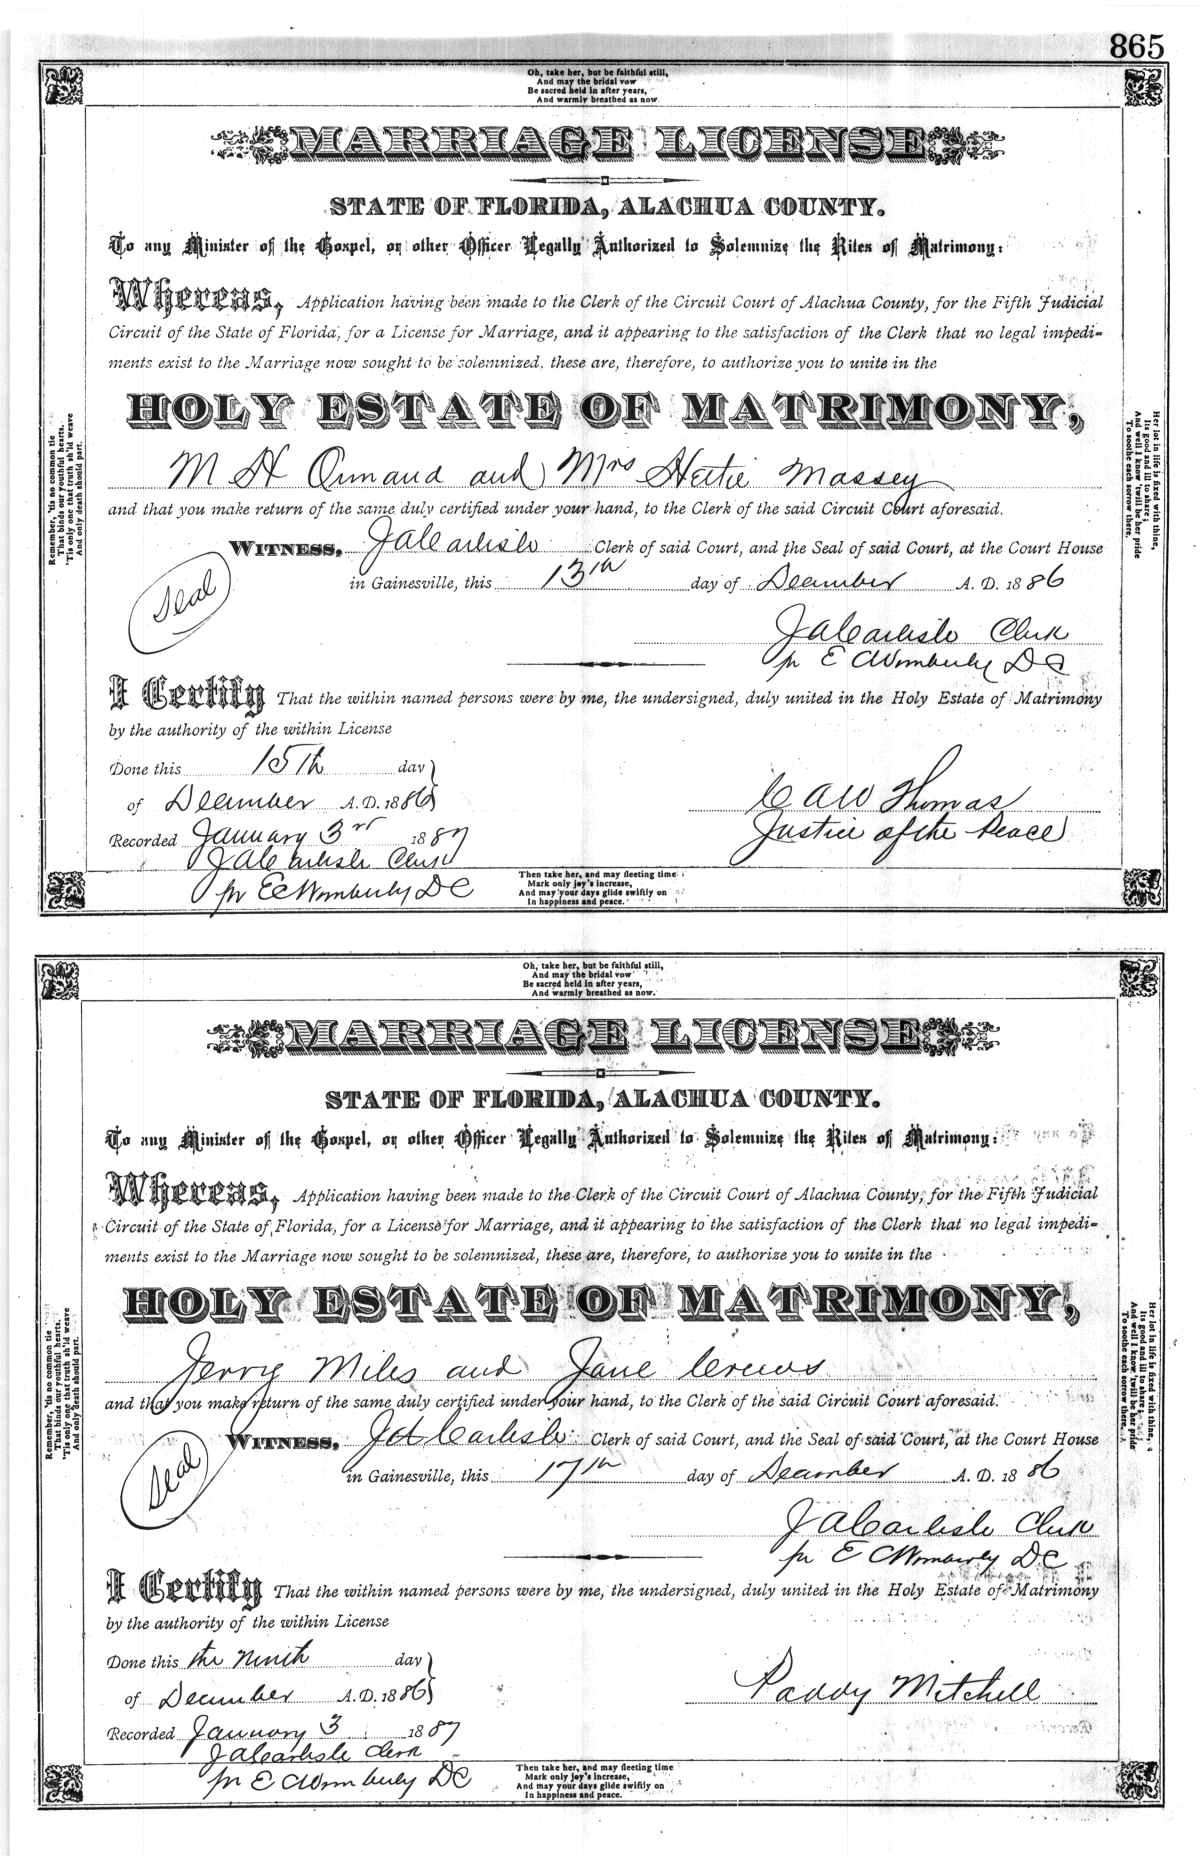 865
Oh, take her, but be faithful still,
And may the bridal vow
Be sacred held in after years,
And warmly breathed as now.
MARRIAGE LICENSE
STATE OF FLORIDA, ALACHUA COUNTY.
To any Minister of the Gospel, or other Officer Legally Authorized to Solemnize the Rites of Matrimony:
Whereas, Application having been made to the Clerk of the Circuit Court of Alachua County, for the Fifth Judicial
Circuit of the State of Florida, for a License for Marriage, and it appearing to the satisfaction of the Clerk that no legal impedi-
ments exist to the Marriage now sought to be solemnized, these are, therefore, to authorize you to unite in the
HOLY ESTATE OF MATRIMONY,
M H and Mrs Massey
and that you make return of the same duly certified under your hand, to the Clerk of the said Circuit Court aforesaid.
WITNESS, J A Carlisle Clerk of said Court, and the Seal of said Court, at the Court House
in Gainesville, this 13th day of December A. D. 1886
Seal
J A Carlisle Clerk
pr E C Wimberly D C
I Certify That the within named persons were by me, the undersigned, duly united in the Holy Estate of Matrimony
by the authority of the within License
Done this 15th day
of December A. D. 1886
C A W Thomas
Justice of the Peace
Recorded January 3rd 1887
J A Carlisle Clerk
pr E C Wimberly D C
Then take her, and may fleeting time
Mark only joy's increase,
And may your days glide swiftly on
In happiness and peace.
Remember, 'tis no common tie
That binds our youthful hearts.
'Tis only one that truth sh'ld weave
And only death should part.
Her lot in life is fixed with thine,
Its good and ill to share;
And well I know 'twill be her pride
To soothe each sorrow there.
Oh, take her, but be faithful still,
And may the bridal vow
Be sacred held in after years,
And warmly breathed as now.
MARRIAGE LICENSE
STATE OF FLORIDA, ALACHUA COUNTY.
To any Minister of the Gospel, or other Officer Legally Authorized to Solemnize the Rites of Matrimony:
Whereas, Application having been made to the Clerk of the Circuit Court of Alachua County, for the Fifth Judicial
Circuit of the State of Florida, for a License for Marriage, and it appearing to the satisfaction of the Clerk that no legal impedi-
ments exist to the Marriage now sought to be solemnized, these are, therefore, to authorize you to unite in the
HOLY ESTATE OF MATRIMONY,
Jerry Miles and Jane Crews
and that you make return of the same duly certified under your hand, to the Clerk of the said Circuit Court aforesaid.
WITNESS, J A Carlisle Clerk of said Court, and the Seal of said Court, at the Court House
in Gainesville, this 17th day of December A. D. 1886
Seal
J A Carlisle Clerk
pr E C Wimberly D C
I Certify That the within named persons were by me, the undersigned, duly united in the Holy Estate of Matrimony
by the authority of the within License
Done this the Ninth day
of December A. D. 1886
Paddy Mitchell
Recorded January 3 1887
J A Carlisle Clerk
pr E C Wimberly D C
Then take her, and may fleeting time
Mark only joy's increase,
And may your days glide swiftly on
In happiness and peace.
Remember, 'tis no common tie
That binds our youthful hearts.
'Tis only one that truth sh'ld weave
And only death should part.
Her lot in life is fixed with thine,
Its good and ill to share;
And well I know 'twill be her pride
To soothe each sorrow there.